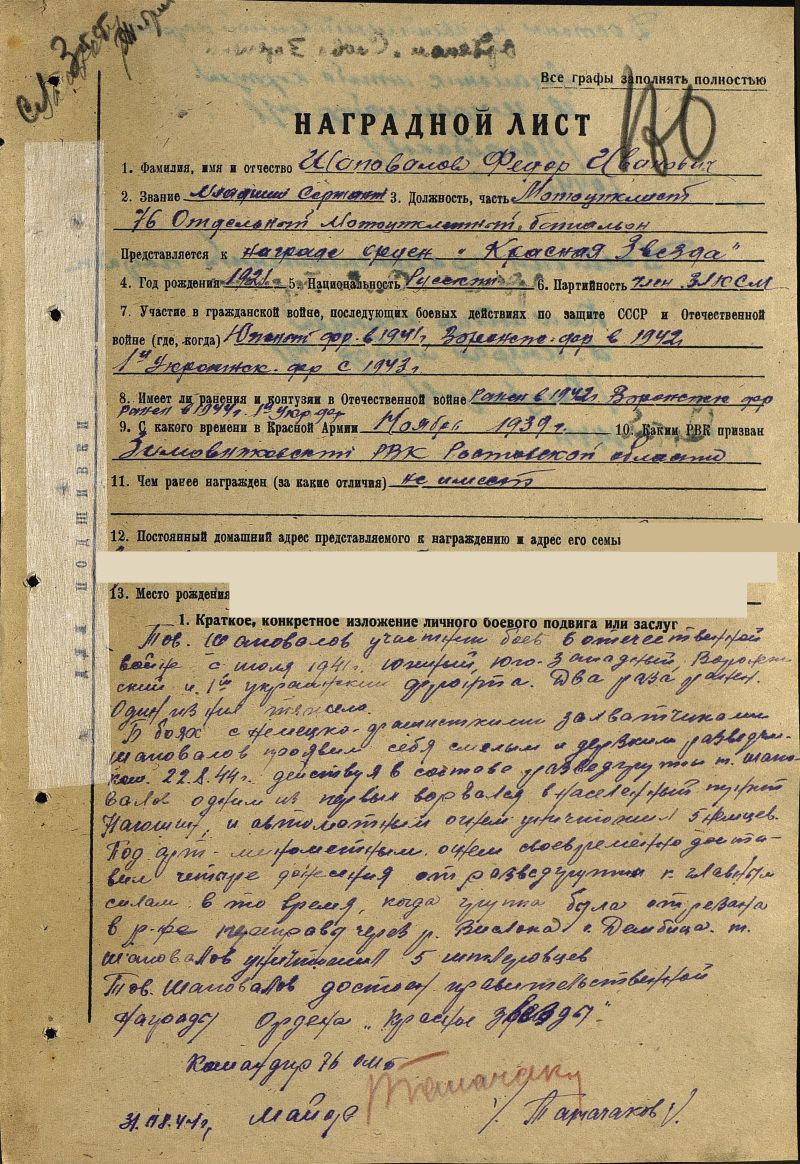 Все графы заполнять полностью
120
НАГРАДНОЙ ЛИСТ
1. Фамилия, имя и отчество Шаповалов Федор Иванович
2. Звание Младший Сержант 3. Должность, часть Мотоциклист
76 Отдельный Мотоциклетный батальон
Представляется к награде орден „Красная Звезда"
4. Год рождения 1921 5. Национальность Русский 6. Партийность член ВЛКСМ
7. Участие в гражданской войне, последующих боевых действиях по защите СССР и Отечественной
войне (где, когда) Южный фр. в 1941г, Воронежс. фр в 1942
1й Украинск. фр с 1943г.
8. Имеет ли ранения и контузии в Отечественной войне ранен в 1942г. Воронежск фр
ранен в 1944г. 1й Укр фр
9. С какого времени в Красной Армии Ноября 1939г. 10. Каким РВК призван
Зимовниковский РВК Ростовской области
11. Чем ранее награжден (за какие отличия) не имеет
12. Постоянный домашний адрес представляемого к награждению и адрес его семьи
13. Место рождения
ДЛЯ ПОДШИВКИ
1. Краткое, конкретное изложение личного боевого подвига или заслуг
Тов. Шаповалов участник боев в отечественной
войне с июля 1941г. Южный, Юго-Западный, Воронеж-
ский и 1й украинский фронта. Два раза ранен.
Один из них тяжело.
В боях с немецко-фашисткими захватчиками
Шаповалов проявил себя смелым и дерзким разведчи-
ком. 22.8.44г. действуя в составе разведгруппы т. Шапо-
валов одним из первых ворвался в населенный пункт
и автоматным огнем уничтожил 5 немцев.
Под арт-минометным огнем своевременно доста-
вил четыре донесения от разведгруппы к главным
силам, в то время, когда группа была отрезана
в р-не переправы через р. Вислока г. Дембица. т.
Шаповалов уничтожил 5 гитлеровцев
Тов. Шаповалов достоин правительственной
награды Ордена „Красное звезды".
Командир 76 омб
Майор /Татачаков/.
31.08.44г,